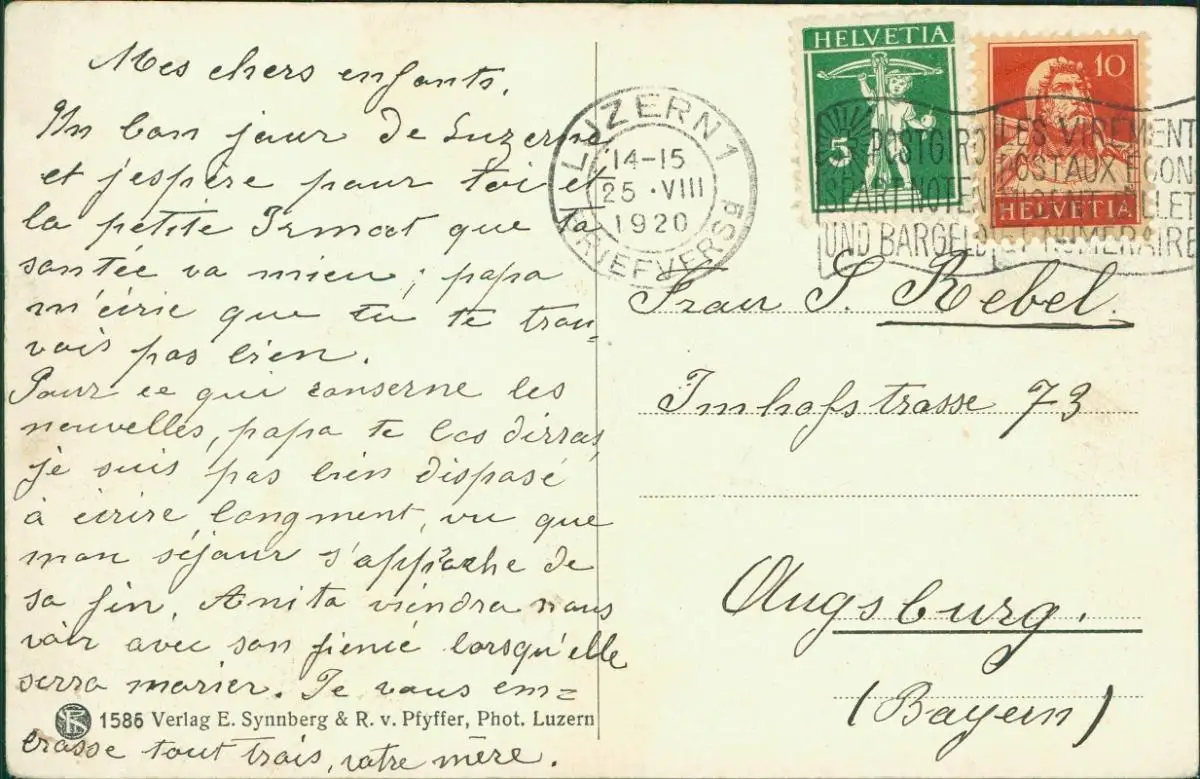 Mes chers enfants.
Un bon jour de Luzerne
et j'espère pour toi et
la petite Irmat que ta
santée va mieu; papa
m'écrie que tu te trou-
vais pas bien.
Pour ce qui conserne les
neuvelles, papa te les dirras,
je suis pas bien disposé
à écrire longment, vu que
mon séjour s'approche de
sa fin. Anita viendra nous
voir avec son fiencé lorsqu'elle
serra marier. Je vous em=
brasse tout trois, votre mère.
1586 Verlag E. Synnberg & R. v. Pfyffer, Phot. Luzern
LUZERN 1
14-15
25.VIII
1920
BRIEFVERSD
HELVETIA
5
10
HELVETIA
POSTGIRO
SPART NOTEN
UND BARGELD
LES VIREMENT
POSTAUX ECON
NUMERAIRE
Frau S. Rebel.
Imhofstrasse 73
Augsburg.
(Bayern)